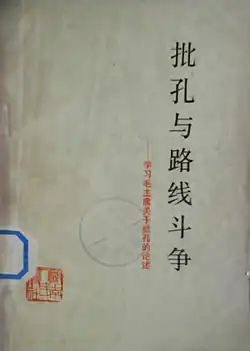 批孔与路线斗争
——学习毛主席关于批孔的论述